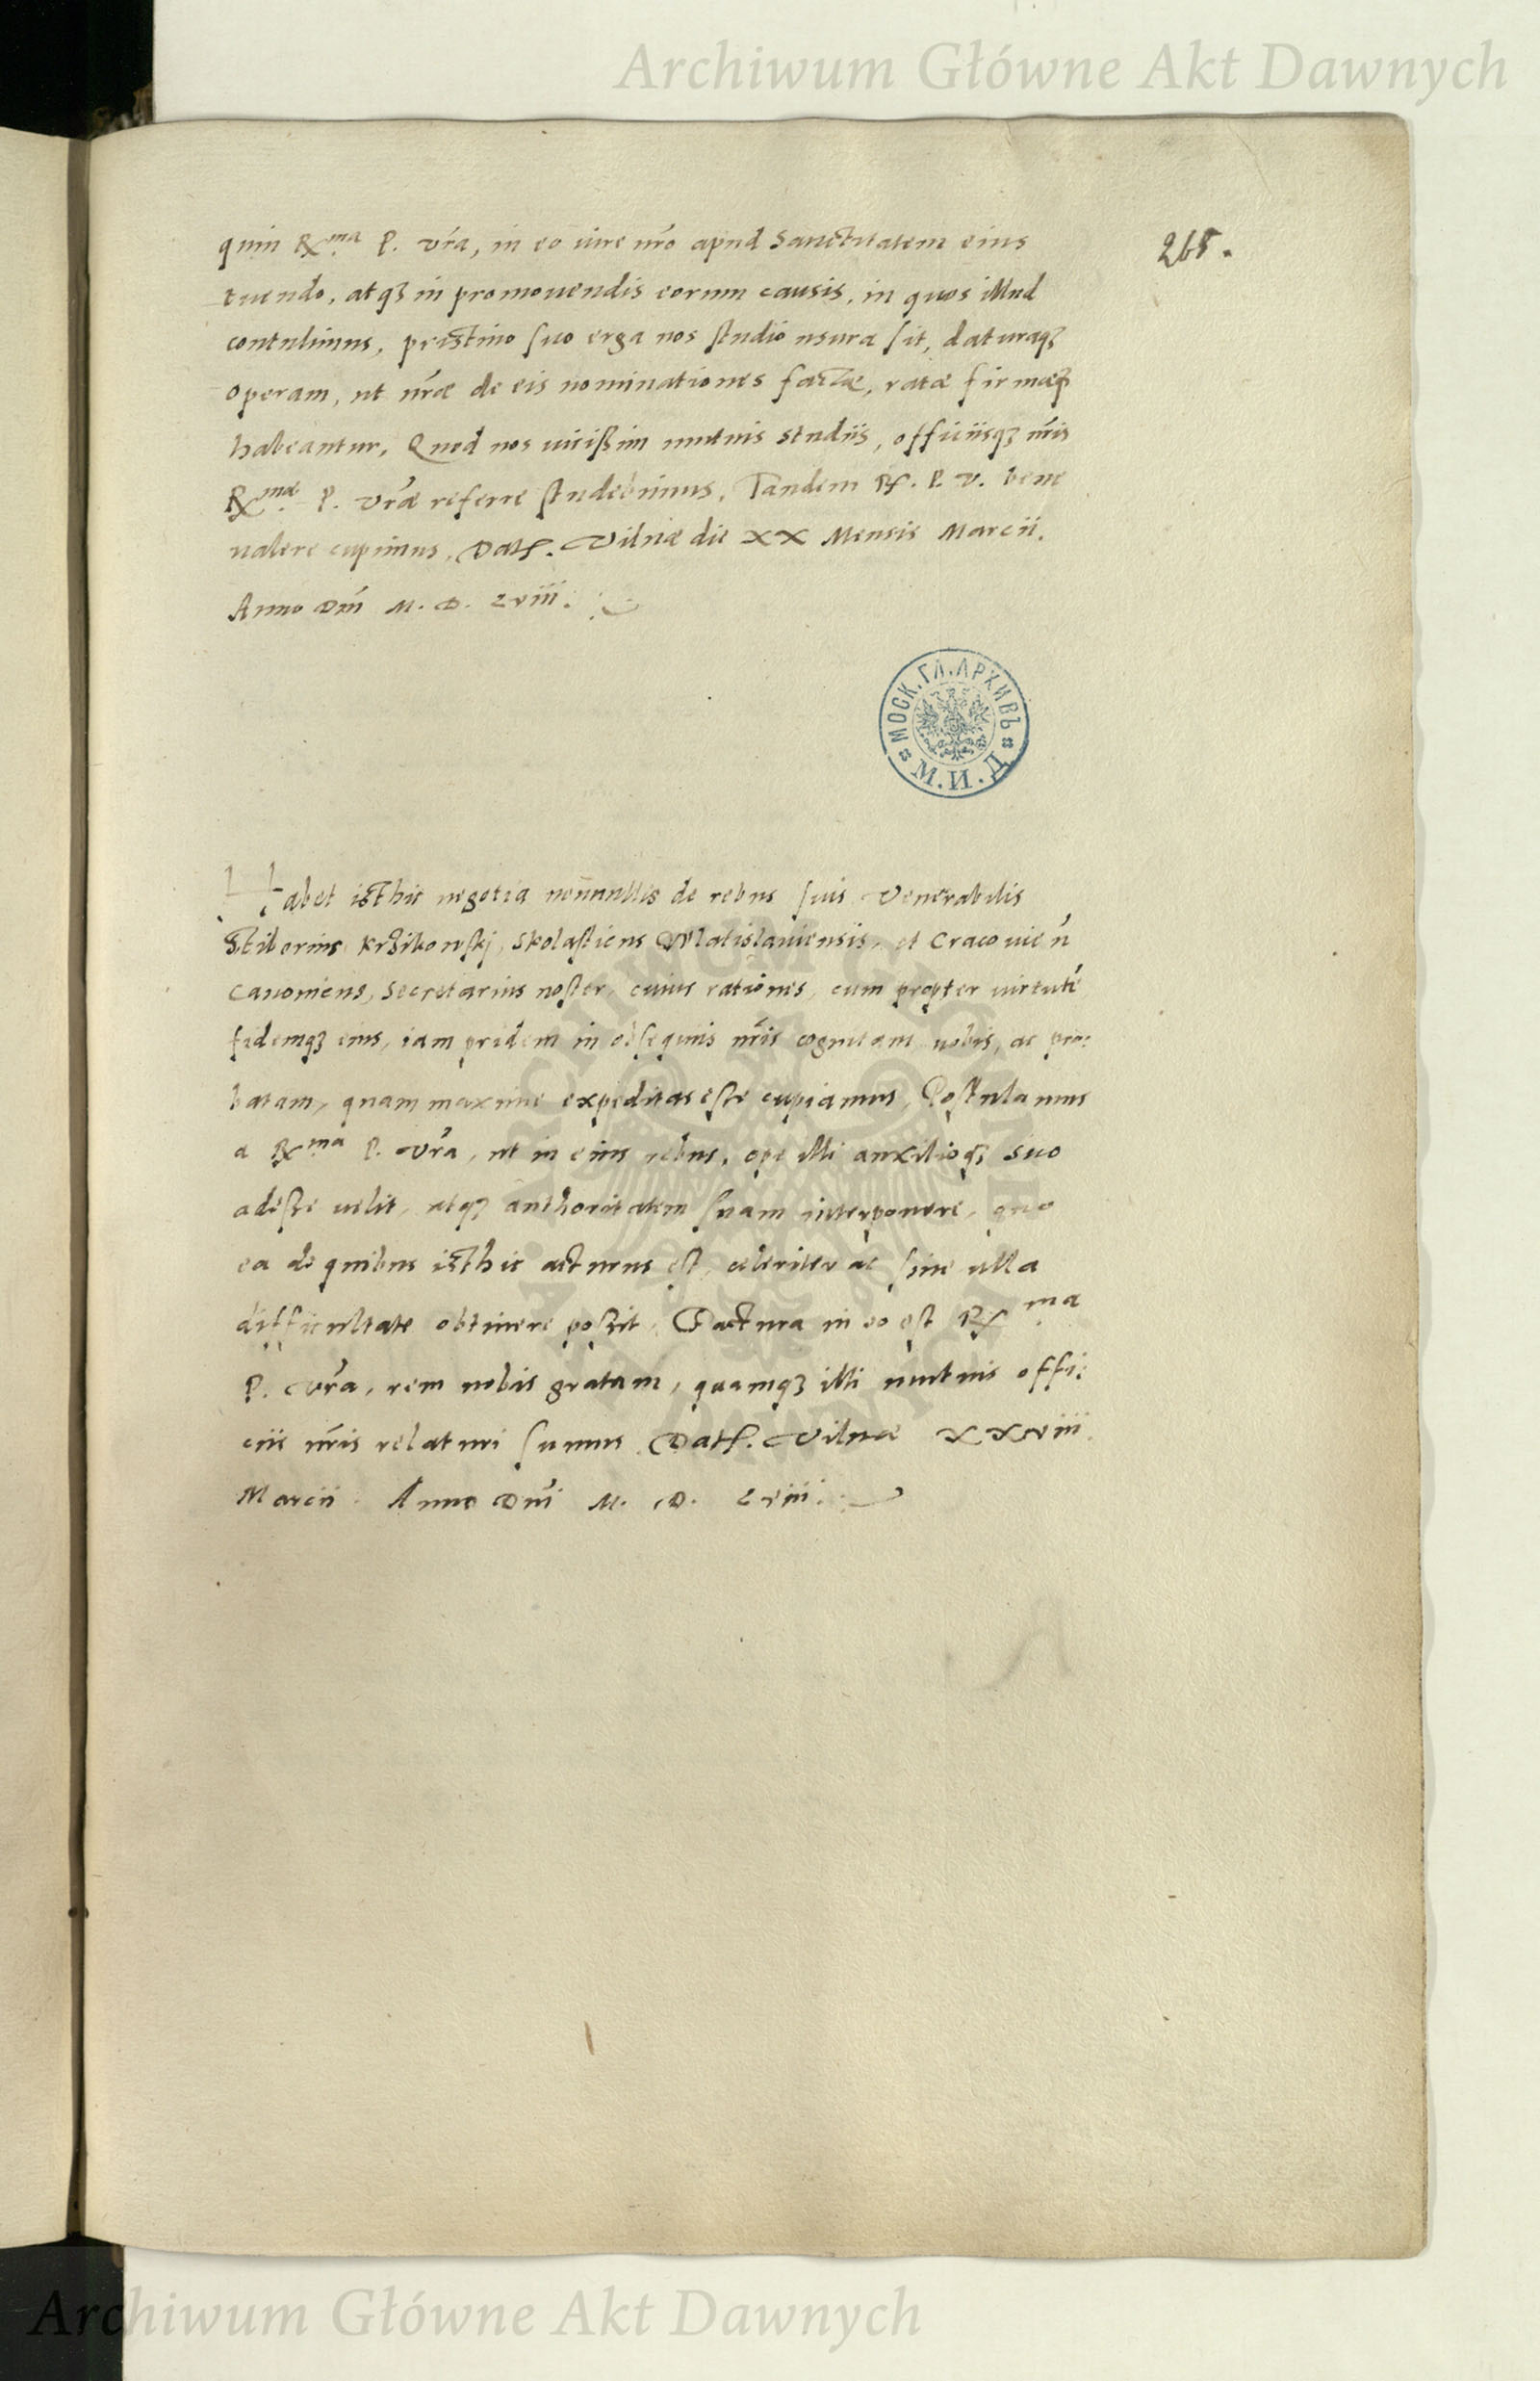 Archiwum Główne Akt Dawnych
265.
quin Rx.ma P. vr̃a, in eo iure nr̃o apud Sanctitatem eius
tuendo, atqʒ in promouendis eorum causis, in quos illud
contulimus, pristino suo erga nos studio usura sit, daturaqʒ
operam, ut nr̃æ de eis nominationes factæ, ratæ firmæqʒ
habeantur, Quod nos uicißim mutuis studiis, officiisqʒ nr̃is
Rx.mæ P. vr̃æ referre studebimus, Tandem Rx. P. v. bene
ualere cupimus, Dat. Vilnæ die XX Mensis Marcii.
Anno Dn̄i M. D. Lviii.
МОСК. ГЛ. АРХИВЪ
М. И. Д.
Habet isthic negotia nonnullis de rebus suis Venerabilis
Stiborius Krʒikowskj, Skolasticus Wlatislauiensis, et Cracouien̄
Canonicus, Secretarius noster, cuius rationes, cum propter uirtutē
fidemqʒ eius, iam pridem in obsequiis nr̃is cognitam nobis, ac pro:
batam, quam maxime expeditas esse cupiamus, Postulamus
a Rx.ma P. Vr̃a, ut in eius rebus, ope illi auxilioqʒ suo
adesse uelit, atqʒ authoritatem suam interponere, quo
ea de quibus isthic acturus est, celeriter ac sine ulla
difficultate obtinere possit, Factura in eo est Rx ma
P. Vr̃a, rem nobis gratam, quamqʒ illi mutuis offi:
ciis nr̃is relaturi sumus. Dat. Vilnæ XXviii
Marcii. Anno Dn̄i M. D. Lviii.
Archiwum Główne Akt Dawnych